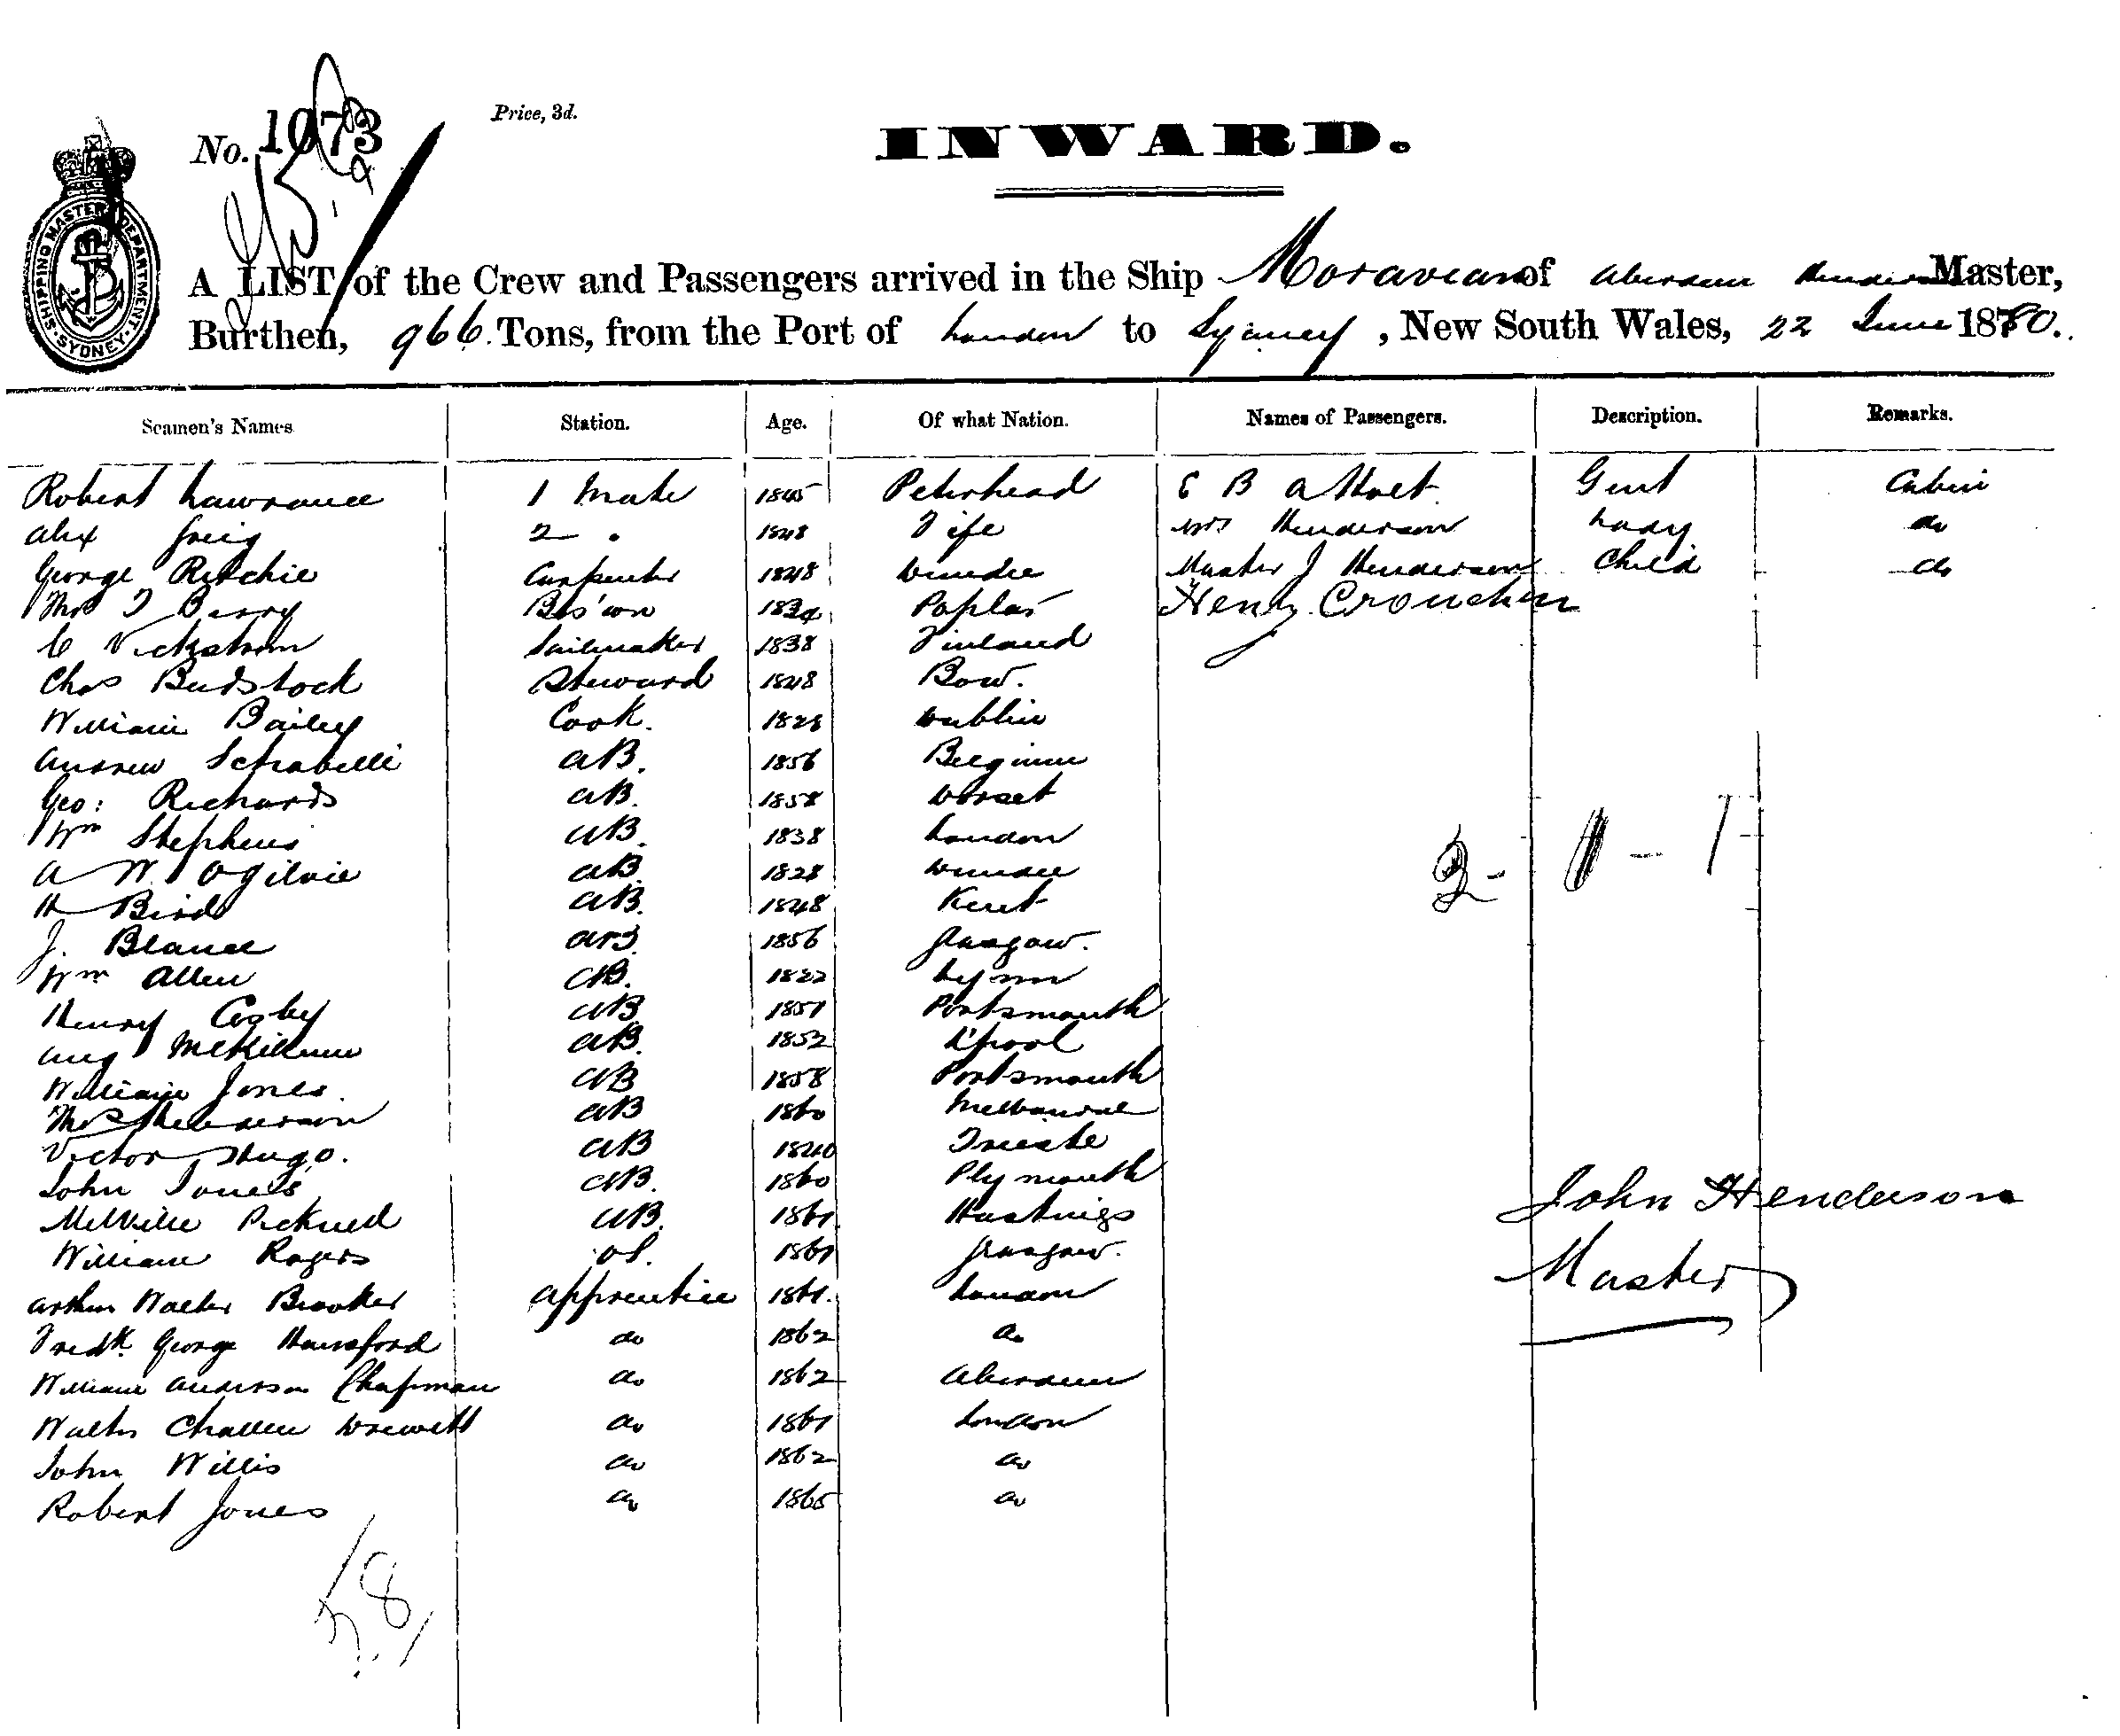 No. 1073
Price, 3d.
INWARD.
SHIPPING MASTER DEPARTMENT. SYDNEY.
A LIST of the Crew and Passengers arrived in the Ship Moravian of Aberdeen Henderson Master,
Burthen, 966 Tons, from the Port of London to Sydney, New South Wales, 22 June 1880.
Seamen's Names Station. Age. Of what Nation. Names of Passengers. Description. Remarks.
Robert Lawrance 1 Mate 1845 Peterhead E B Gent Cabin
Alex Greig 2 " 1848 Fife Mrs Henderson Lady do
George Ritchie Carpenter 1848 Dundee Master J Henderson Child do
Thos T Berry Bos'on 1834 Poplar Henry Croucher
C Vickstrom Sailmaker 1838 Finland
Chas Budstock Steward 1848 Bow.
William Bailey Cook. 1828 Dublin
Andrew Schabelli AB. 1856 Belgium
Geo: Richards AB. 1858 Dorset
Wm Stephens AB. 1838 London
A W Ogilvie AB. 1828 Dundee
H Bird AB. 1848 Kent
J. Blance AB. 1856 Glasgow.
Wm Allen AB. 1822 Lynn
Henry Cosby AB 1857 Portsmouth
Aug McKillum AB. 1852 L'pool
William Jones. AB 1858 Portsmouth
Thos Henderson AB 1860 Melbourne
Victor Hugo. AB 1840 Trieste
John Jones AB. 1860 Plymouth
Melville Picknell AB. 1861 Hastings
John Henderson
William Rogers OS. 1861 Glasgow.
Master
Arthur Walter Brooker Apprentice 1861. London
Fredk. George Hansford do 1862 do
William Anderson Chapman do 1862 Aberdeen
Walter Challen Drewett do 1861 London
John Willis do 1862 do
Robert Jones do 1865 do